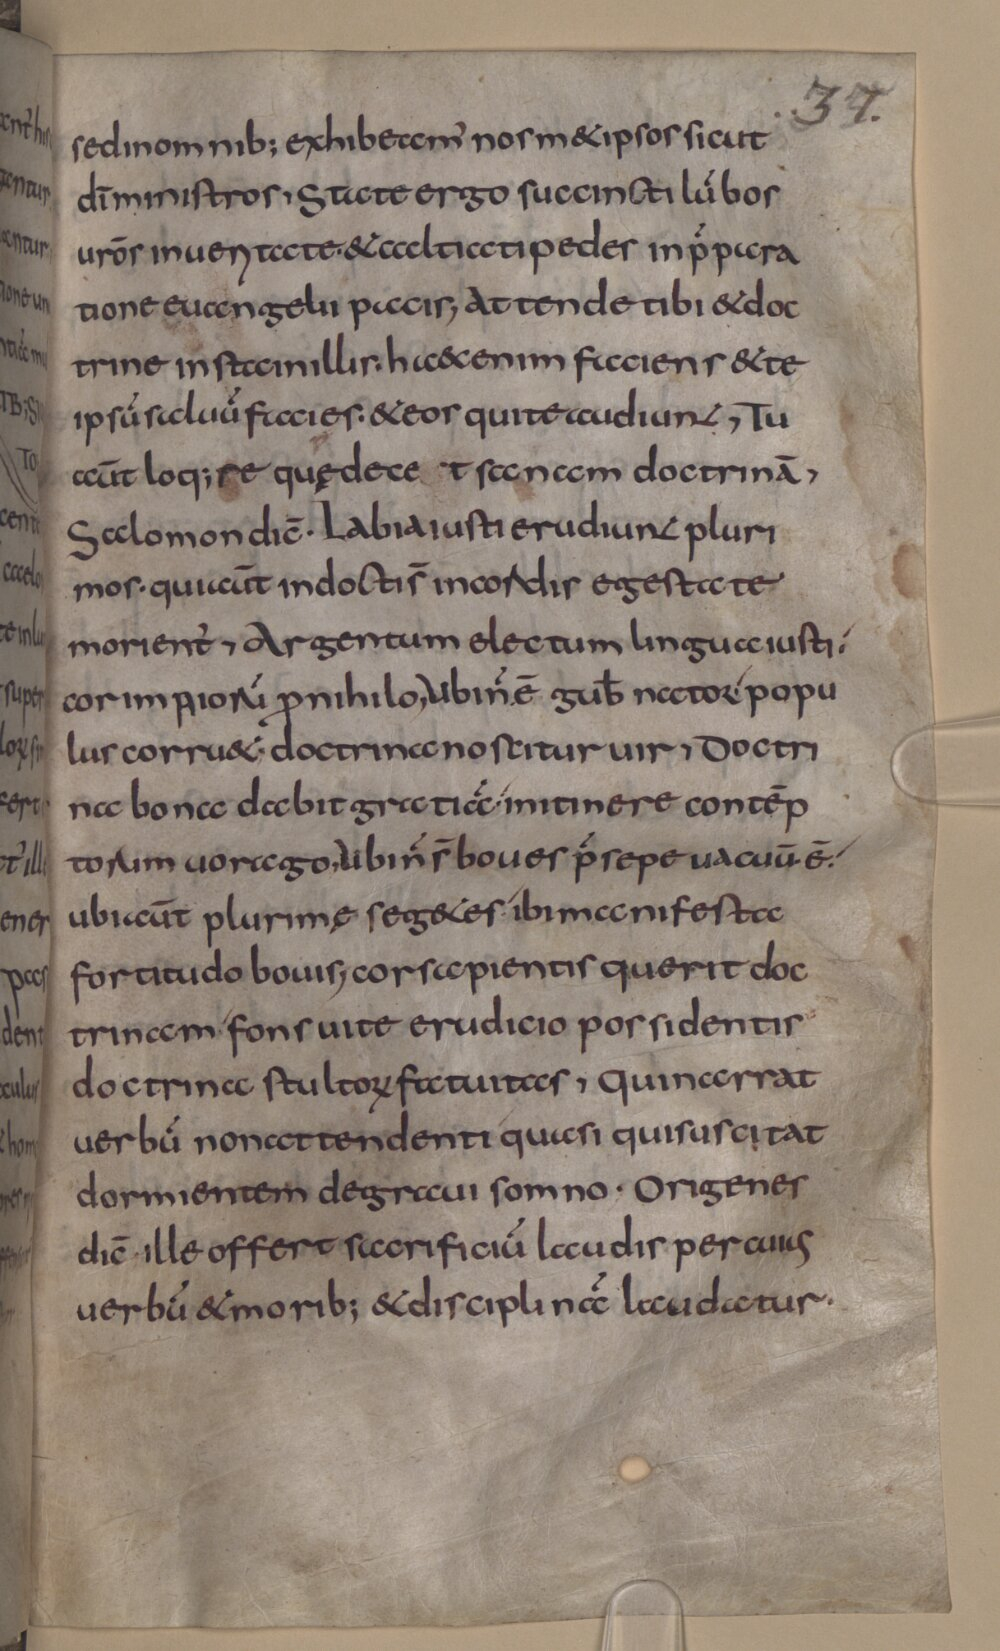 37.
sedinomnib; exhibeam̄ nosm&ipsos sicut
dī ministros, State ergo succincti lūbos
urōs inueritate·&calciati pedes inp̄para
tione euangelii pacis; Attende tibi &doc
trine instainillis·hæc enim faciens &te
ipsū saluū facies·&eos quite audiunt, Tu
aūt loq;re quę dece t sanam doctrinā,
Salomon dic̄· Labia iusti erudiunt pluri
mos·qui aūt indocti s̄ incordis egestate
morient̄, Argentum electum lingua iusti·
cor impiorū ꝓnihilo, Ubin̄ ē gub̄nator popu
lus corru&· doctrina noscitur uir, Doctri
na bona dabit gratiā·initinere contēp
torum uorago, Ubin̄ s̄ boues p̄sepe uacuū ē·
ubi aūt plurimę seg&es·ibi manifesta
fortitudo bouis; cor sapientis querit doc
trinam fons uite erudicio possidentis
doctrina stultorꝝ fatuitas, Quinarrat
uerbū nonattendenti quasi quisuscitat
dormientem degraui somno· Origenes
dic̄ ·ille offert sacrificiū laudis per cuius
uerbū &morib; &disciplinā laudatur·